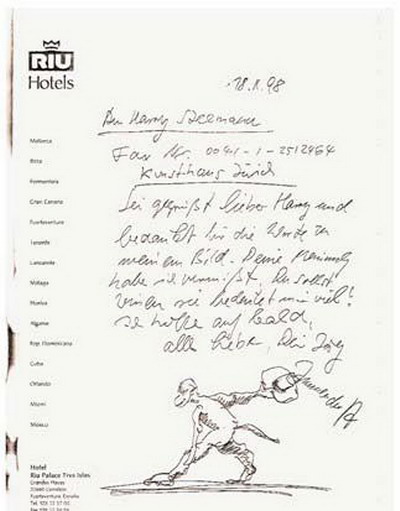 RIU
Hotels
18.1.98
An Harry Szeemann
Fax Nr. 0041-1-2512464
Kunsthaus Zürich
Sei gegrüßt lieber Harry und
bedankt für die Worte zu
meinem Bild. Deine Meinung
habe ich vermißt. Du sollst
wissen sie bedeutet mir viel!
Ich hoffe auf bald,
alles liebe, Dein Jörg
Immendorff
Mallorca
Ibiza
Formentera
Gran Canaria
Fuerteventura
Tenerife
Lanzarote
Malaga
Huelva
Algarve
Rep. Dominicana
Cuba
Orlando
Miami
México
Hotel
Riu Palace Tres Islas
Grandes Playas
Fuerteventura España